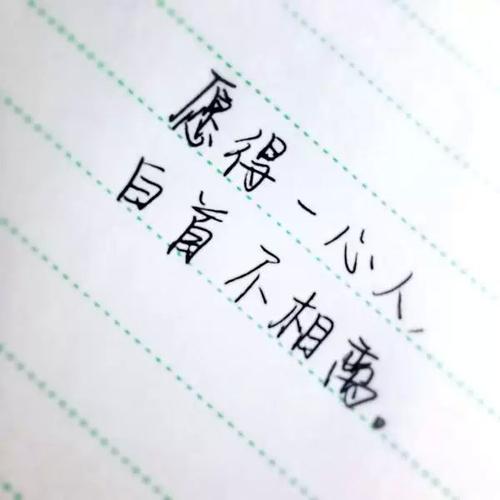 愿得一心人,
白首不相离.